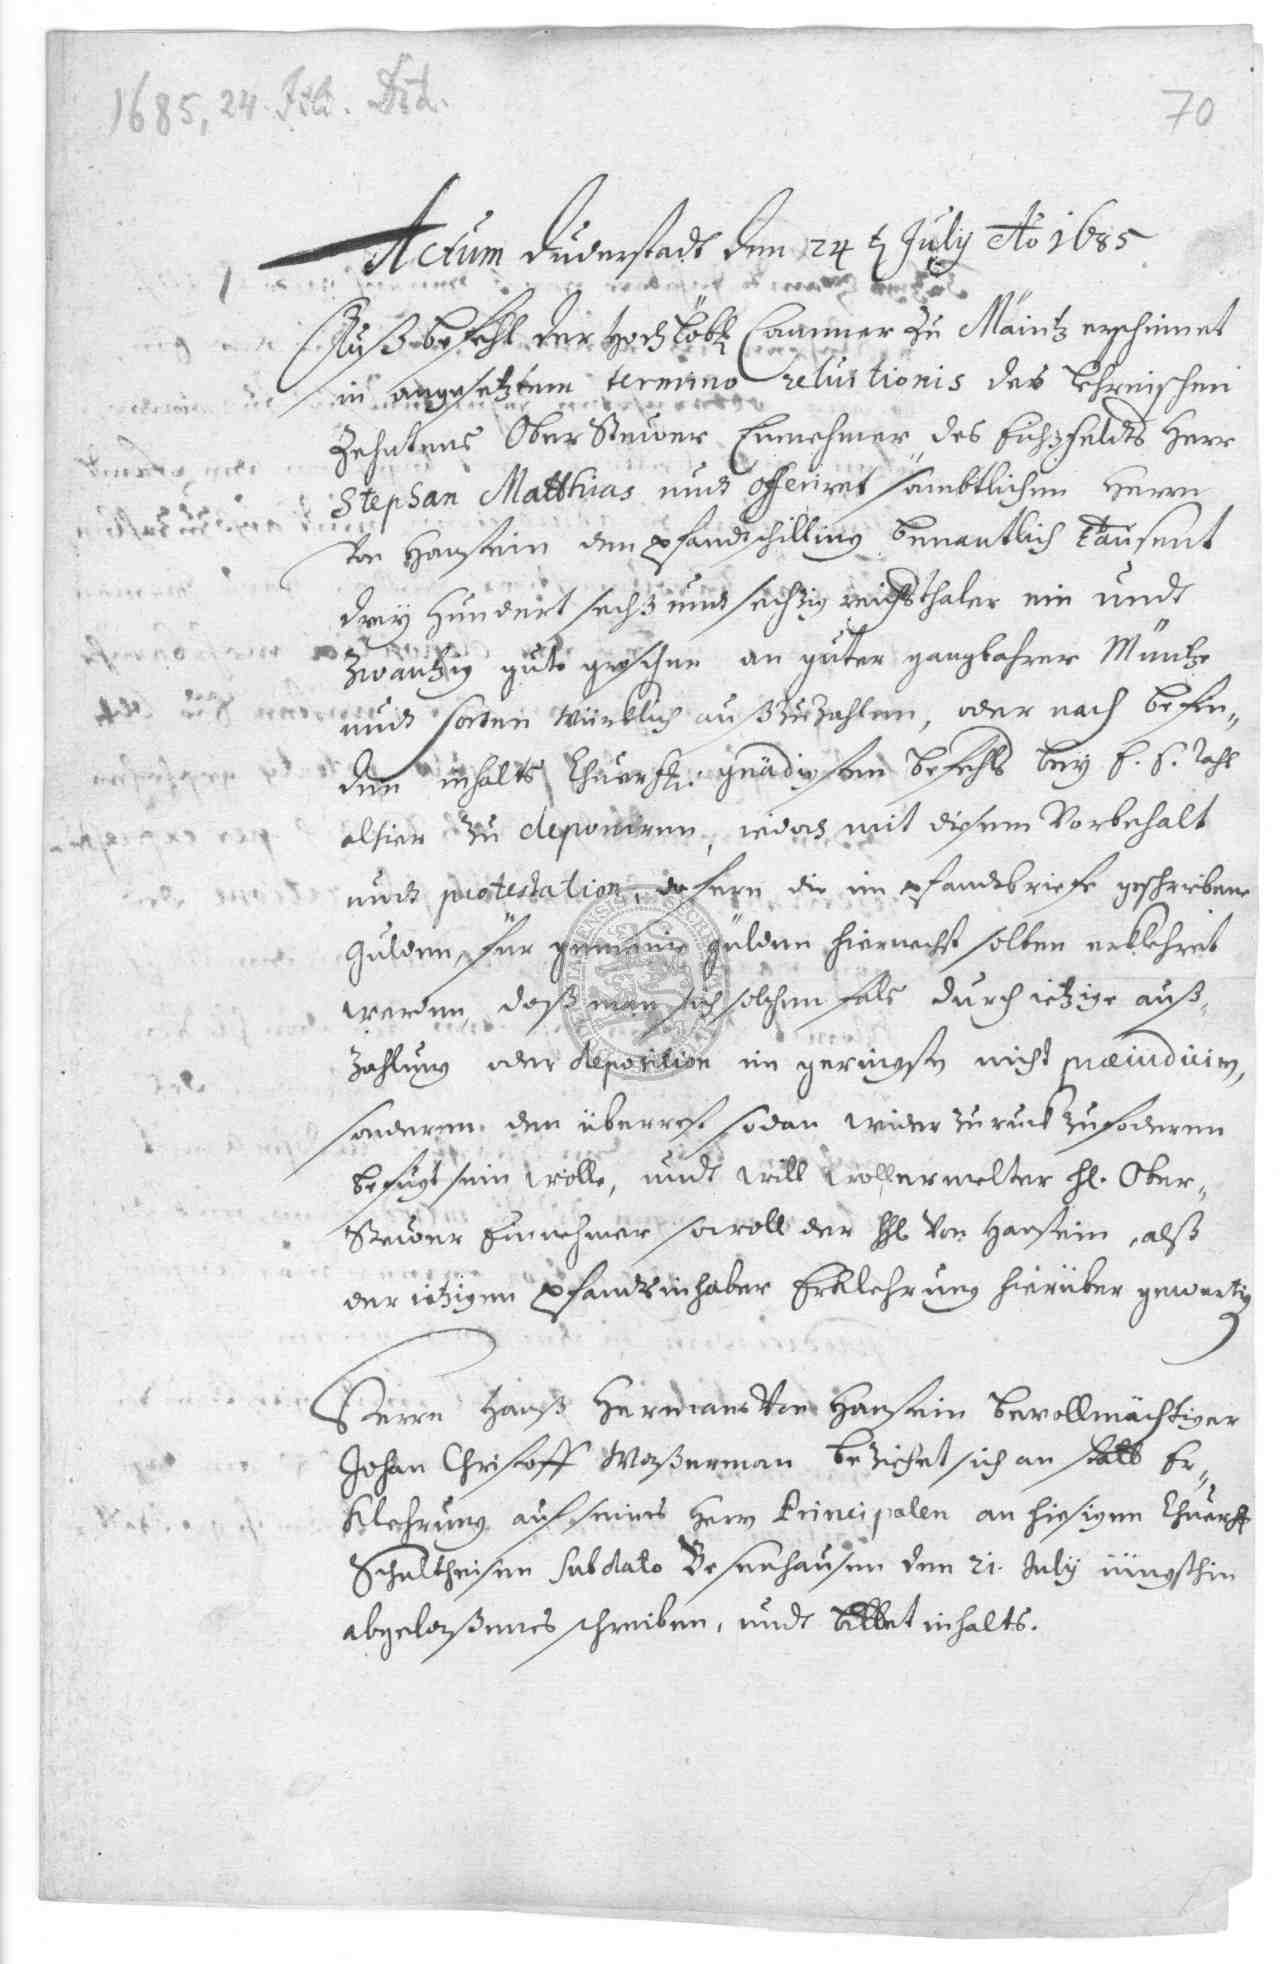 1685, 24. Juli. Dud.
70
Actum Duderstadt den 24 t. July Ao 1685
Auß befehl der Hochlöbl. Cammer zu Mäintz erscheinet
in angesetztem termino reluitionis des Lehnischen
Zehntens Ober Steuer Einnehmer des Eichßfeldts Herr
Stephan Matthias undt offeriret sämbtlichen Herrn
von Hanstein den pfandtschilling benantlich tausent
drey hundert sechß undt sechzig reichsthaler ein undt
zwantzig gute groschen an guter gangbahrer Müntze
undt sorten würklich außzuzahlen, oder nach befin-
den inhalts Churfl. gnädigsten befehls bey E. E. Raht
alhier zu deponiren, iedoch mit diesem Vorbehalt
undt protestation, dofern die im pfandtbriefe geschriebene
gulden, für gemeine gülden hiernechst solten erklehret
werden, daß man sich solchen fals durch ietzige auß-
zahlung oder deposition im geringsten nicht præiudicirn,
sonderen den überrest sodan wider zuruck zufoderen
befugt sein wolle, undt will wollermelter Hl. Ober-
Steuer Einnehmer sowoll der Hhl. von Hanstein, alß
der ietzigen pfandts inhaber Erklehrung hierüber gewertig
Herrn Hanß Herman von Hanstein bevollmächtiger
Johan Christoff Waßerman beziehet sich an statt Er-
klehrung auf seines Herrn Principalen an hiesigen Churfl.
Schultheisen sub dato Besenhausen den 21. July iüngsthin
abgelaßenes schreiben, undt billet inhalts.